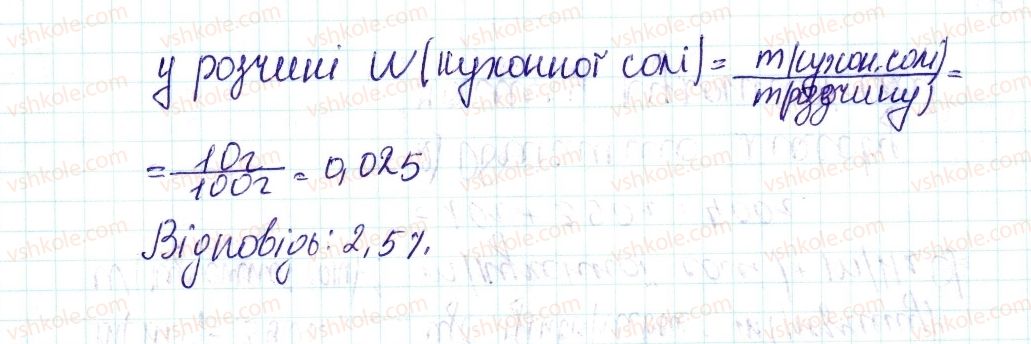 у розчині W(кухонної солі) = m(кухон. солі) / m(розчину) =
= 10г / 100г = 0,025
Відповідь: 2,5%.